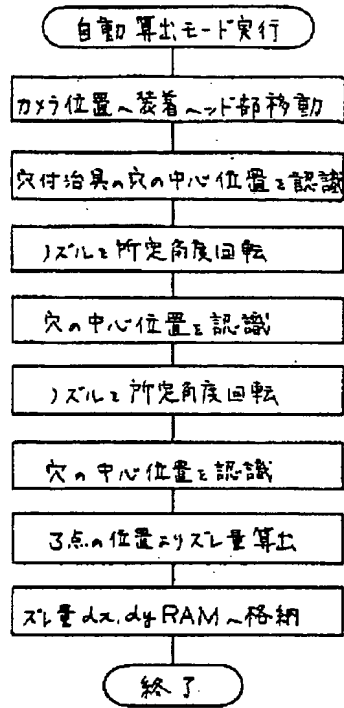 自動算出モード実行
カメラ位置へ装着ヘッド部移動
穴付治具の穴の中心位置を認識
ノズルを所定角度回転
穴の中心位置を認識
ノズルを所定角度回転
穴の中心位置を認識
3点の位置よりズレ量算出
ズレ量dx,dyRAMへ格納
終了